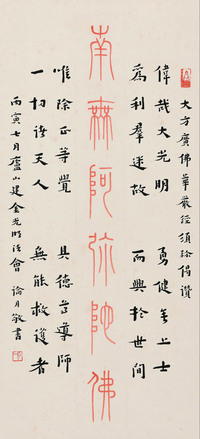 大方廣佛華嚴經須彌偈讚
偉哉大光明 勇健無上士
爲利羣迷故 而興於世間
南無阿彌陀佛
唯除正等覺 具德尊導師
一切諸天人 無能救護者
丙寅七月廬山建金光明法會 論月敬書